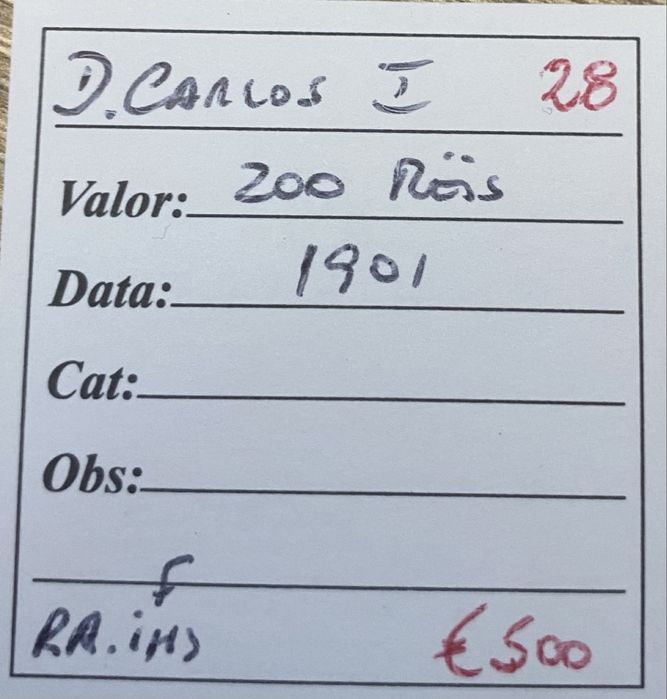 D. CARLOS I 28
Valor: 200 Réis
Data: 1901
Cat:
Obs:
€500